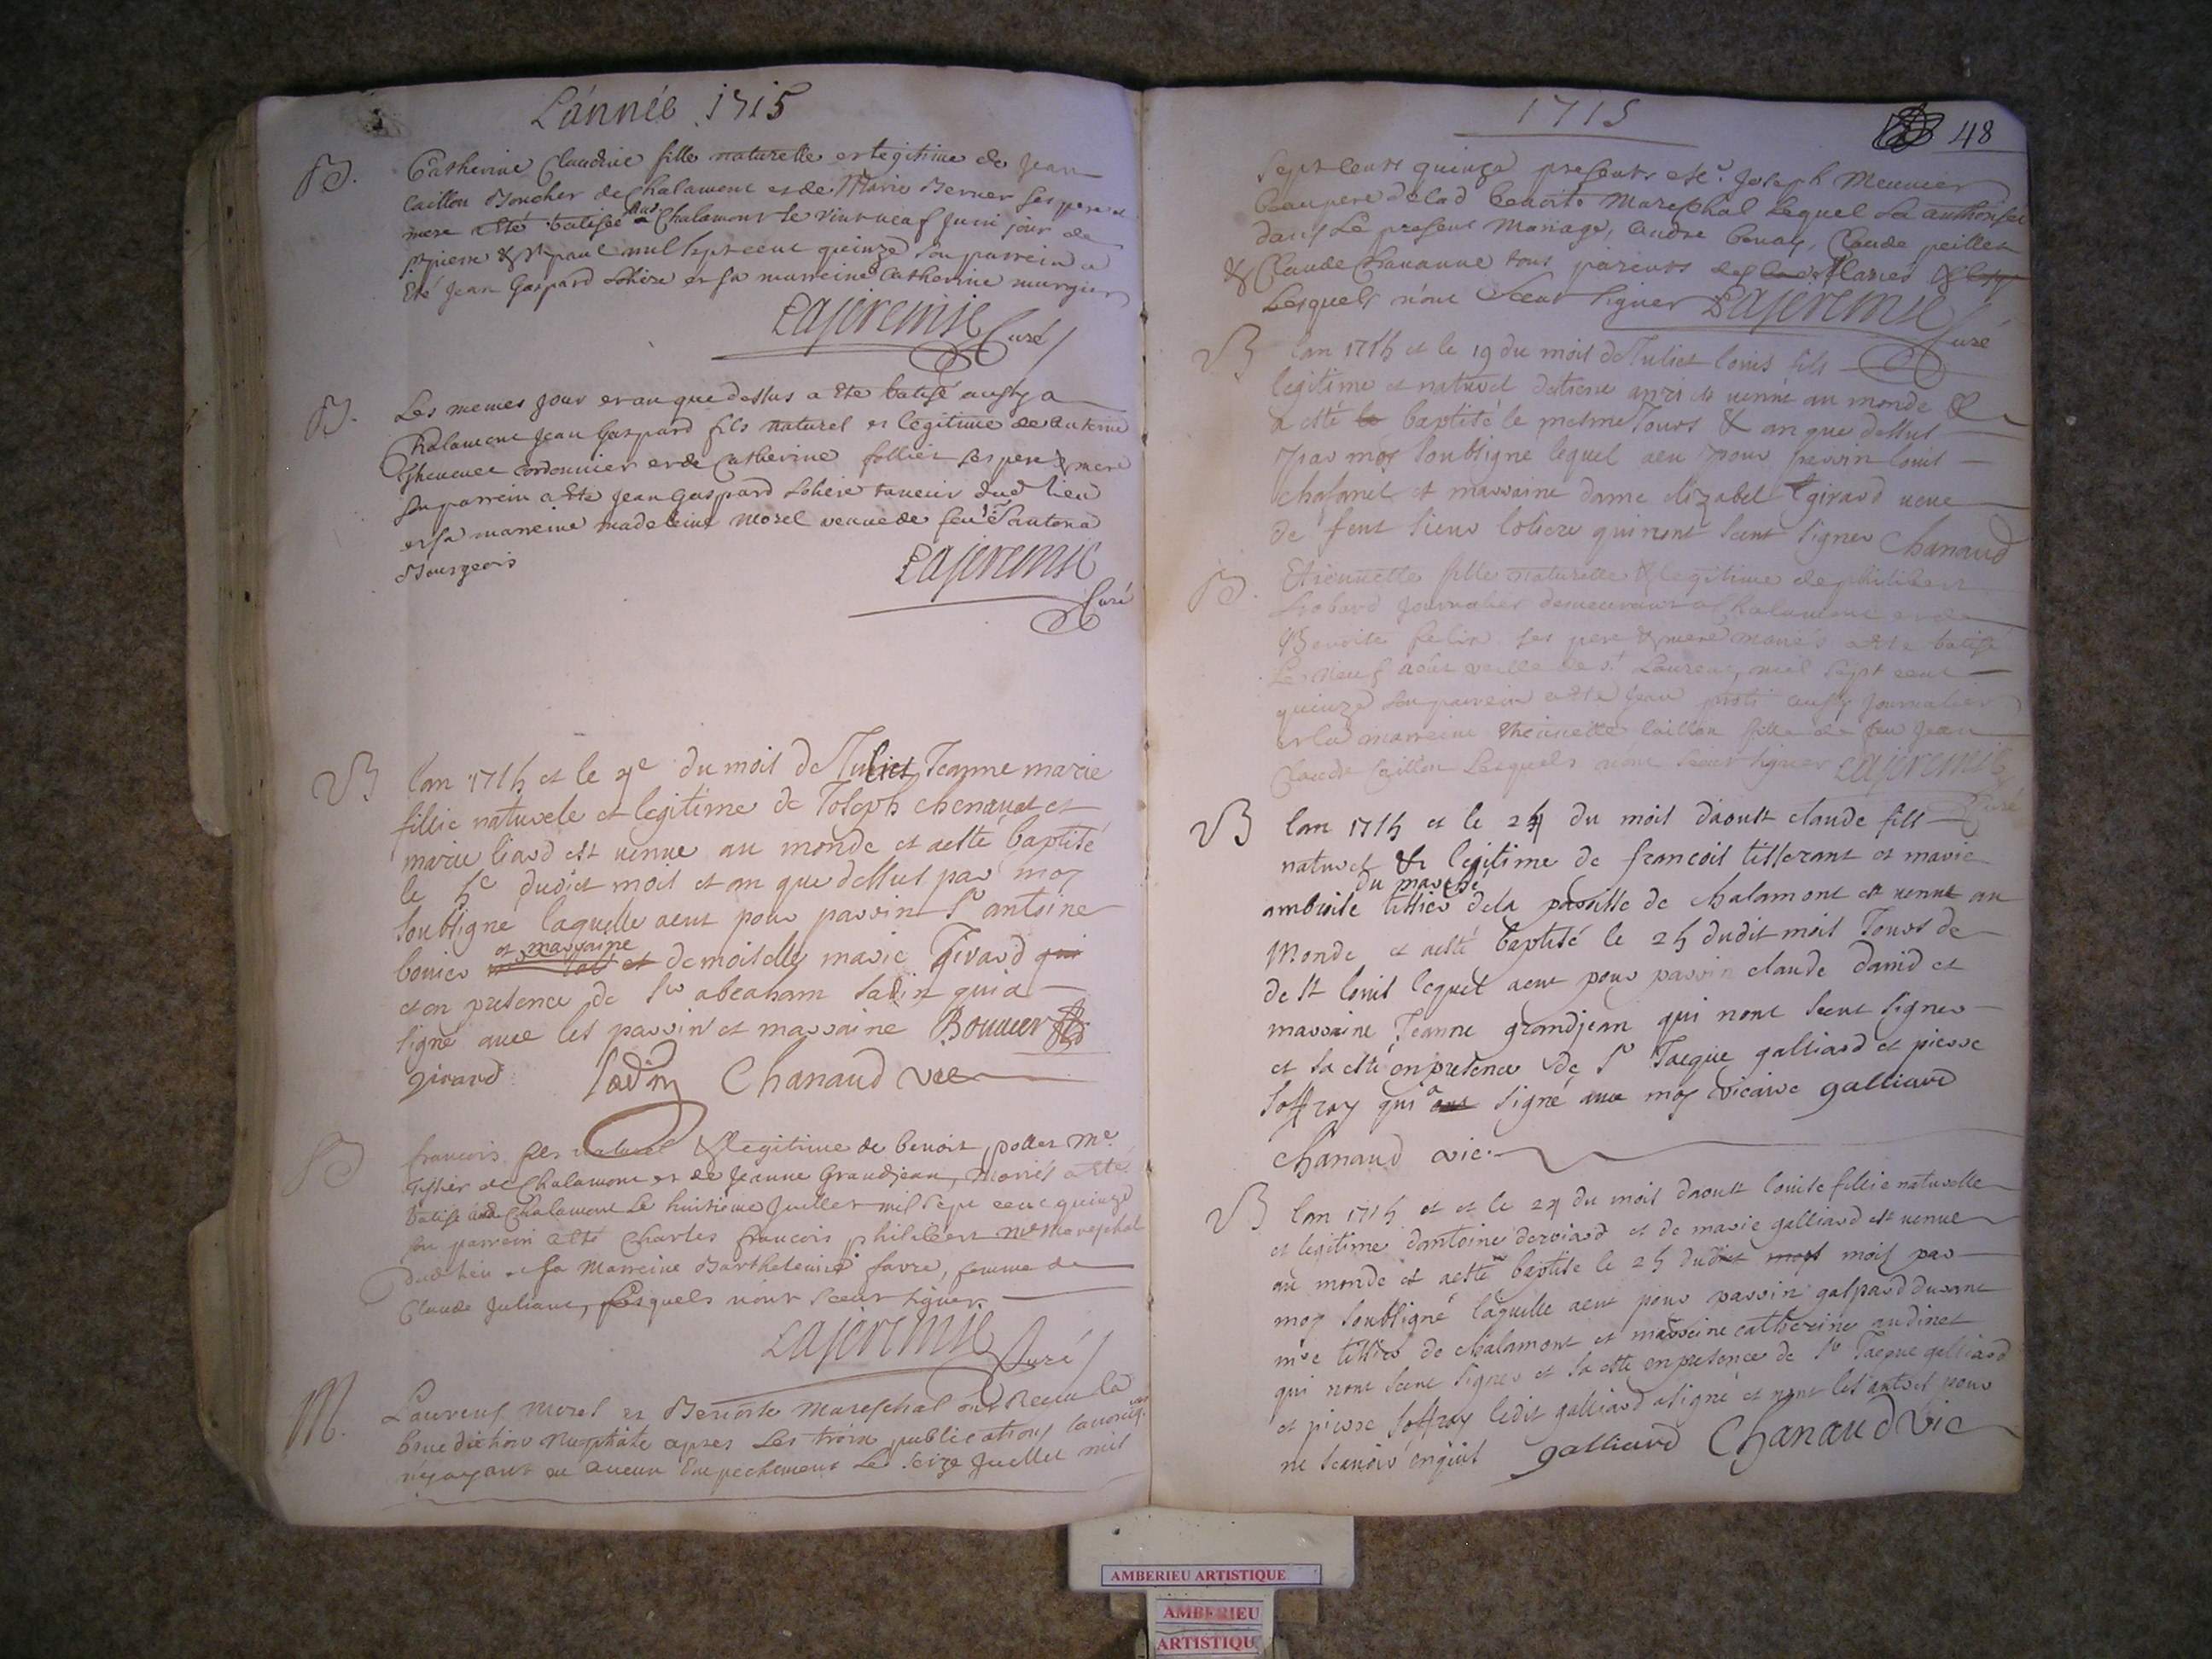 L'année 1715
B.
Catherine Claudine fille naturelle et legitime de Jean
Caillon Boucher de Chalamont et de Marie Bernier ses pere et
mere a Eté batisée aud Chalamont le vint neuf Juin jour de
St pierre & St paul mil sept cent quinze son parrein a
Eté Jean Gaspard Lohiere et sa marreine Catherine
Lajeremie Curé
B.
Les memes jour et an que dessus a Eté batisé aussy a
Chalamont Jean Gaspard fils naturel et legitime de antoine
cordonnier et de Catherine follier ses pere & mere
son parrein a Eté Jean Gaspard Lohiere taneur dud lieu
et sa marreine madeleine Morel veuve de feu Sr
Bourgeois
Lajeremie
Curé
B
lan 1715 et le 4e du mois de Juliet Jeanne marie
fillie naturele et legitime de Joseph chenauat et
marie liard est venue au monde et aesté baptisé
le 5e dudict mois et an que dessus par moy
soubsigné laquelle aeut pour parrin Sr antoine
bouier et marraine demoiselle marie Girard qui
et en presence de Sr abraham ladin qui a
signé avec les parrin et marraine Bouuier
girard ladin Chanaud vic
B
francois fils naturel & legitime de benoit pollet Me
Tissier de Chalamont et de Jeanne Grandjean, mariés a Eté
batisé aud Chalamont le huitieme Juillet mil sept cent quinze
son parrein a Eté Charles francois philibert Me Mareschal
dud lieu et sa Marreine Barthelemie favre, femme de
Claude Juliant, lesquels n'ont sceut signer.
Lajeremie Curé
M.
Laurens Morel et Benoiste Mareschal ont Receu la
benediction Nuptiale apres Les trois publications
n'y ayant eu aucun Empechement Le seize Juillet mil
1715
48
sept cents quinze presents Me. Joseph Meunier
beaupere de lad benoite Mareschal Lequel La authorisee
dans Le present Mariage, andre benay, Claude peillet
& Claude Chananne tous parents des mariés
Lesquels n'ont sceut signer Lajeremie
Curé
B
lan 1715 et le 19 du mois de Juliet louis fils
legitime et naturel detiene est venue au monde &
a esté baptisé le mesme Jours & an que dessus
par moy soubsigne lequel aeu pour parrin louis
chasanel et marraine dame elizabet girard veue
de feut sieur lohiere quinont sceut signer Chanaud
B.
Etiennette fille naturelle & legitime de philibert
Journalier demeurant a Chalamont et de
Benoite felix ses pere & mere mariés a Eté batisé
Le Neuf août veille de St Laurent, mil sept cent
quinze son parrein a Eté Jean aussy Journalier
et la marreine Etiennette Caillon fille de feu Jean
Claude Caillon Lesquels n'ont sceut signer Lajeremie
Curé
B
lan 1715 et le 24 du mois daoust claude fils
naturel & legitime de francois tisserant et marie
du marché
ambroise tissier dela paroisse de chalamont est venut au
Monde et aesté baptisé le 25 dudit mois Jours de
de St louis lequel aeut pour parrin claude david et
marraine Jeanne grandjean qui nont sceut signer
et sa esté en presence de Sr Jacque galliard et pierre
Joffray qui a signé avec moy vicaire galliard
Chanaud vic.
B
lan 1715 et et le 24 du mois daoust louise fillie naturelle
et legitime dantoine derviard et de marie galliard est venue
au monde et aesté baptise le 25 dudict mois par
moy soubsigné laquelle aeut pour parrin gaspard durant
mre tissier de chalamont et marraine catherine audinet
qui nont sceut signer et sa esté en presence de Sr Jacque galliard
et pierre Joffray ledit galliard asigné et nont les autres pour
ne scauoir enquis galliard Chanaud vic
AMBERIEU ARTISTIQUE
AMBERIEU
ARTISTIQU